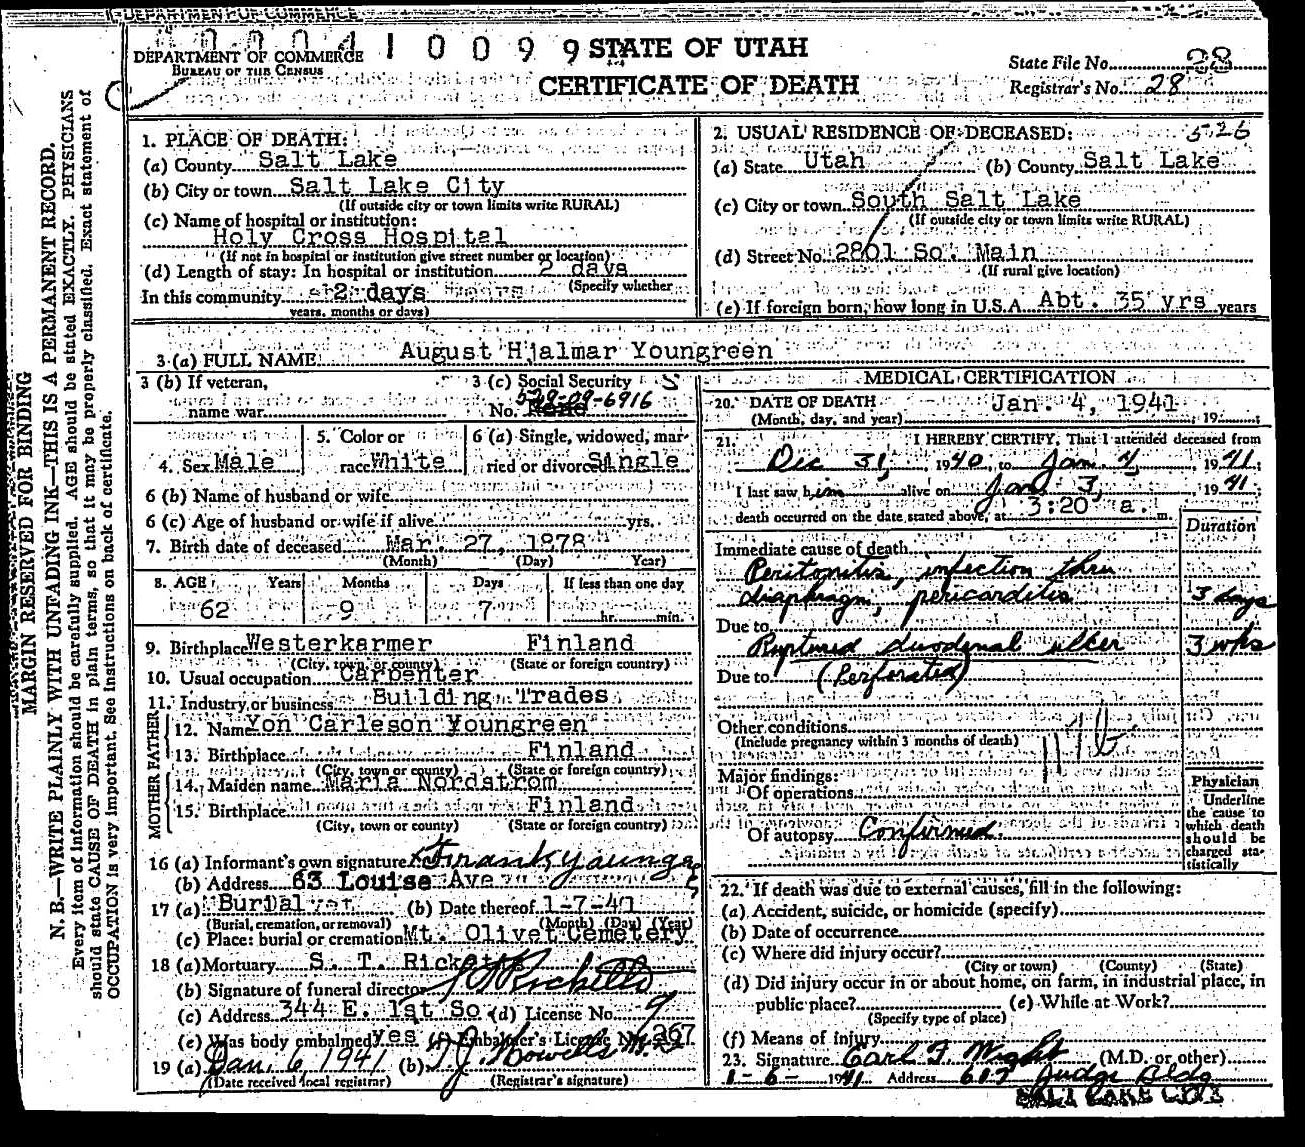 DEPARTMENT OF COMMERCE
0 0 0 4 1 0 0 9 9
DEPARTMENT OF COMMERCE
BUREAU OF THE CENSUS
STATE OF UTAH
CERTIFICATE OF DEATH
State File No. 28
Registrar's No. 28
MARGIN RESERVED FOR BINDING
N. B.—WRITE PLAINLY WITH UNFADING INK—THIS IS A PERMANENT RECORD.
Every item of information should be carefully supplied. AGE should be stated EXACTLY. PHYSICIANS
should state CAUSE OF DEATH in plain terms, so that it may be properly classified. Exact statement of
OCCUPATION is very important. See instructions on back of certificate.
1. PLACE OF DEATH:
(a) County Salt Lake
(b) City or town Salt Lake City
(If outside city or town limits write RURAL)
(c) Name of hospital or institution:
Holy Cross Hospital
(If not in hospital or institution give street number or location)
(d) Length of stay: In hospital or institution 2 days
(Specify whether
In this community 2 days
years, months or days)
2. USUAL RESIDENCE OF DECEASED: 526
(a) State Utah (b) County Salt Lake
(c) City or town South Salt Lake
(If outside city or town limits write RURAL)
(d) Street No. 2801 So. Main
(If rural give location)
(e) If foreign born, how long in U.S.A. Abt. 35 yrs years
3 (a) FULL NAME August Hjalmar Youngreen
3 (b) If veteran,
name war
3 (c) Social Security
No. 528-09-6916
4. Sex Male
5. Color or
race White
6 (a) Single, widowed, mar-
ried or divorced Single
6 (b) Name of husband or wife
6 (c) Age of husband or wife if alive yrs.
7. Birth date of deceased Mar. 27, 1878
(Month) (Day) Year)
8. AGE Years Months Days If less than one day
62 9 7 hr. min.
9. Birthplace Westerkarmer Finland
(City, town, or county) (State or foreign country)
10. Usual occupation Carpenter
11. Industry or business Building Trades
FATHER
12. Name Yon Carleson Youngreen
13. Birthplace Finland
(City, town or county) (State or foreign country)
MOTHER
14. Maiden name Maria Nordstrom
15. Birthplace Finland
(City, town or county) (State or foreign country)
16 (a) Informant's own signature Frank
(b) Address 63 Louise Ave
17 (a) Burial (b) Date thereof 1-7-41
(Burial, cremation, or removal) (Month) (Day) (Year)
(c) Place: burial or cremation Mt. Olivet Cemetery
18 (a) Mortuary S. T. Ricketts
(b) Signature of funeral director Ricketts
(c) Address 344 E. 1st So (d) License No. 9
(e) Was body embalmed yes (f) Embalmer's License No. 267
19 (a) Jan. 6 1941 (b) T. J. Howells M.D.
(Date received local registrar) (Registrar's signature)
MEDICAL CERTIFICATION
20. DATE OF DEATH Jan. 4, 1941
(Month, day, and year) 19
21. I HEREBY CERTIFY, That I attended deceased from
Dec 31, 1940, to Jan. 4, 1941;
I last saw him alive on Jan 3, 1941;
death occurred on the date stated above, at 3:20 a. m.
Duration
Immediate cause of death
Peritonitis, infection thru
diaphragm, pericarditis 3 days
Due to
Ruptured duodenal ulcer 3 wks
Due to (Perforated)
Other conditions
(Include pregnancy within 3 months of death)
117b
Major findings:
Of operations
Of autopsy Confirmed.
Physician
Underline
the cause to
which death
should be
charged sta-
tistically
22. If death was due to external causes, fill in the following:
(a) Accident, suicide, or homicide (specify)
(b) Date of occurrence
(c) Where did injury occur?
(City or town) (County) (State)
(d) Did injury occur in or about home, on farm, in industrial place, in
public place? (e) While at Work?
(Specify type of place)
(f) Means of injury
23. Signature Carl F. Wight (M.D. or other)
1-6- 1941 Address 617 Judge Bldg
SALT LAKE CITY